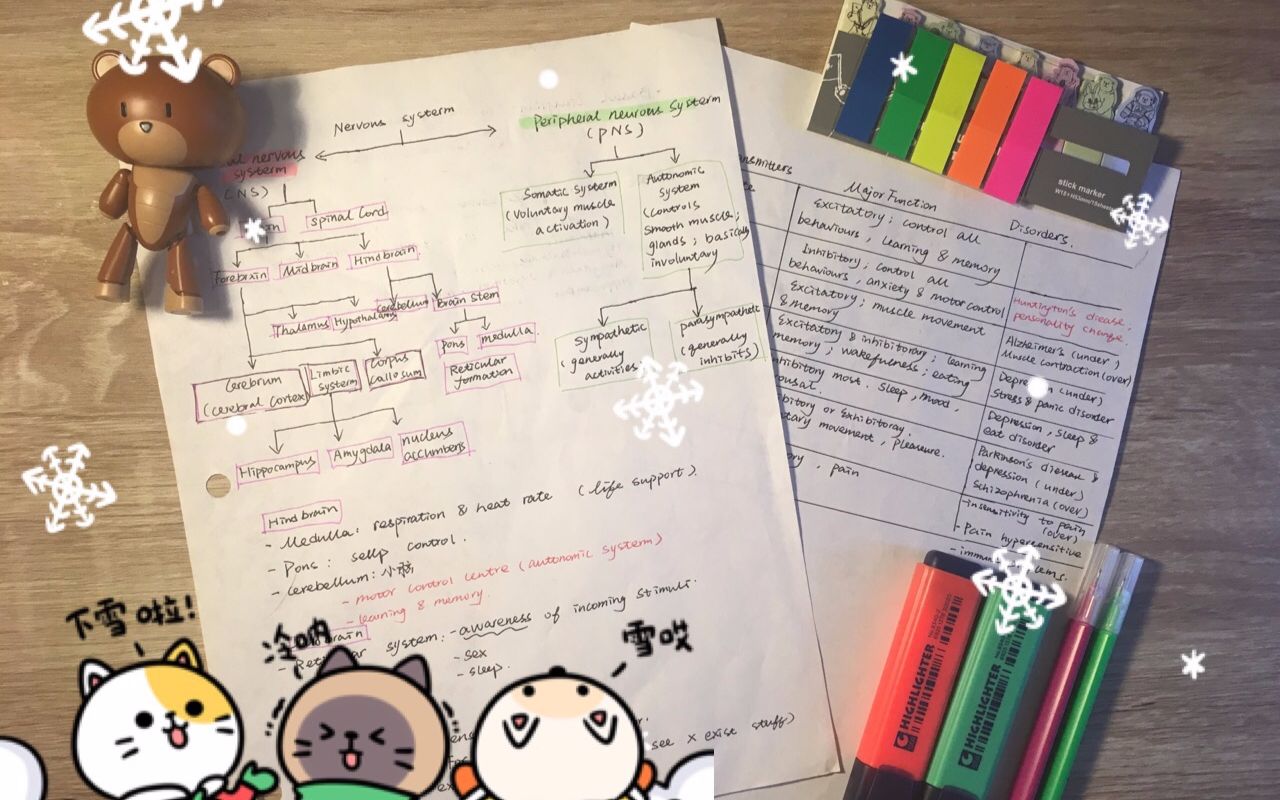 Nervous systerm
Peripheral neurous systerm
(PNS)
nervous
systerm
Spinal Cord
Forebrain
Midbrain
Hindbrain
Thalamus
Hypothalamus
Cerebellum
Brain Stem
Pons
medulla
Reticular
formation
Cerebrum
(cerebral cortex)
Limbic
systerm
Corpus
callosum
Hippocampus
Amygdala
nucleus
accumbens
Somatic System
(Voluntary muscle
activation)
Autonomic
System
(controls
Smooth muscle;
glands; basically
involuntary
Sympathetic
(generally
activities)
parasympathetic
(generally
inhibits)
Hindbrain
- Medulla: respiration & heat rate (life support).
- Pons: sellp control.
- Cerebellum: 小脑
- motor control centre (autonomic system)
- learning & memory.
system: - awareness of incoming stimuli.
- sex
- sleep.
see x exise stuff)
Major Function
Disorders.
Excitatory; control all
behaviours, learning & memory
Inhibitory; control all
behaviours, anxiety & motor control
Huntington's disease;
personality change.
Excitatory; muscle movement
& memory
Alzheimer's (under)
Muscle contraction (over)
Excitatory & inhibitoray; learning
memory; wakefulness; eating
(under)
Stress & panic disorder
most. Sleep, mood,
Depression, sleep &
eat disorder
or Exhibitoray.
movement, pleasure.
Parkinson's disease &
depression (under)
Schizophrenia (over)
, pain
- insensitivity to pain
(over)
- Pain hypersensitive
stick marker
HIGHLIGHTER
HIGHLIGHTER
下雪啦!
冷呐
雪哎